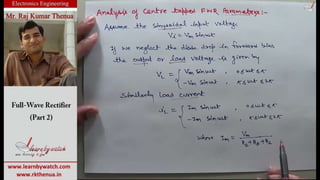 Electronics Engineering
Mr. Raj Kumar Thenua
Full-Wave Rectifier
(Part 2)
learnbywatch.com
www.learnbywatch.com
www.rkthenua.in
Analysis of Centre tapped FWR Parameters:-
Assume the Sinusoidal input voltage
Vi = Vm sinωt
If we neglect the diode drop in forward bias
the output or load voltage is given by
VL = { Vm sinωt , 0≤ωt≤π
-Vm sinωt , π≤ωt≤2π
Similarly load current
iL = { Im sinωt , 0≤ωt≤π
-Im sinωt , π≤ωt≤2π
where Im = Vm